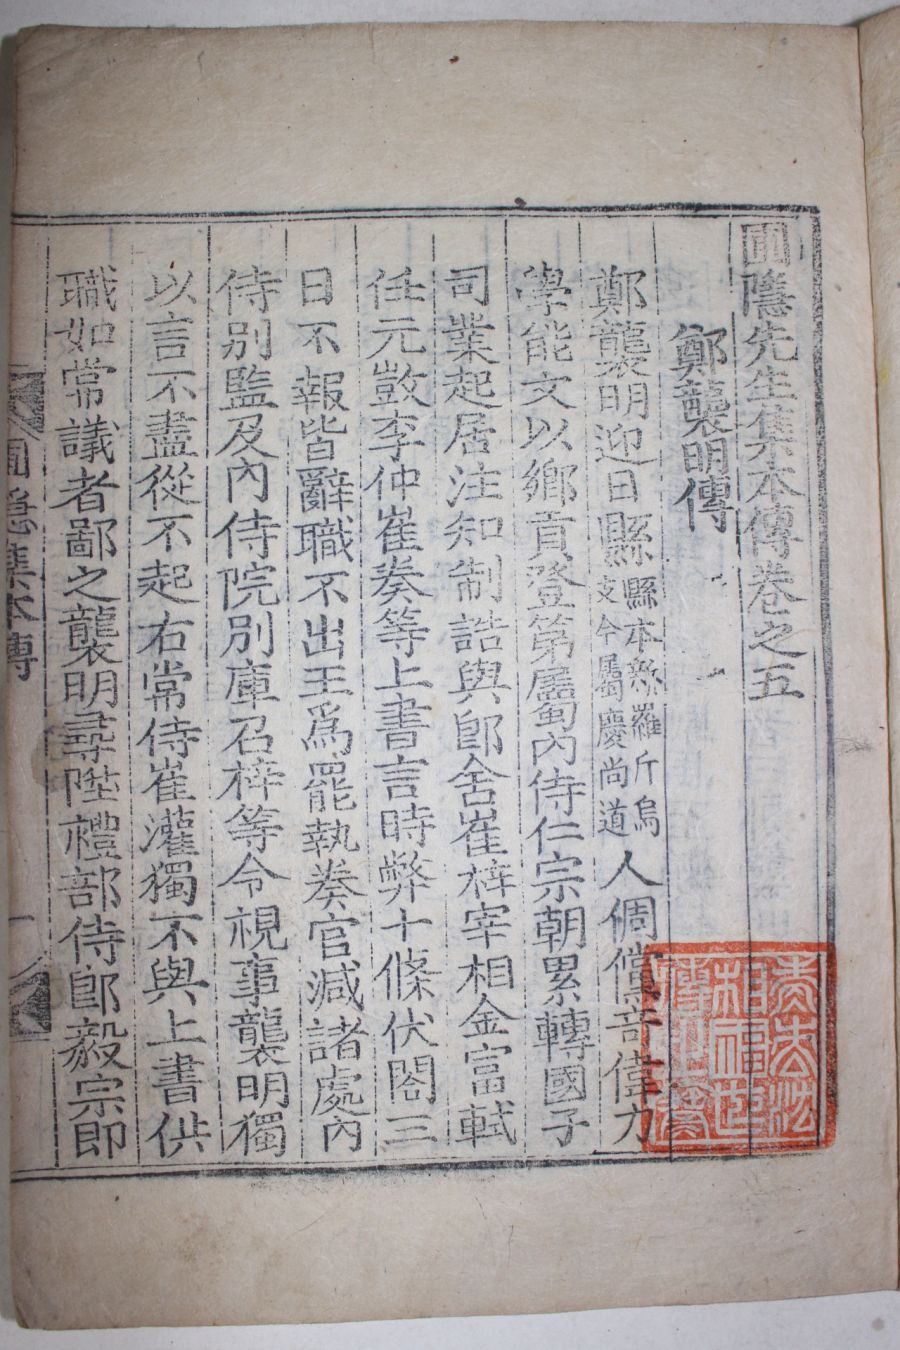 圃隱先生集本傳卷之五
鄭襲明傳
鄭襲明迎日縣縣本新羅斤烏支今屬慶尚道人倜儻奇偉力
學能文以鄉貢登第屬內侍仁宗朝累轉國子
司業起居注知制誥與郎舍崔梓宰相金富軾
任元敱李仲崔奏等上書言時弊十條伏閤三
日不報皆辭職不出王爲罷執奏官減諸處內
侍別監及內侍院別庫召梓等令視事襲明獨
以言不盡從不起右常侍崔灌獨不與上書供
職如常議者鄙之襲明尋陞禮部侍郎毅宗即
圃隱集本傳
一